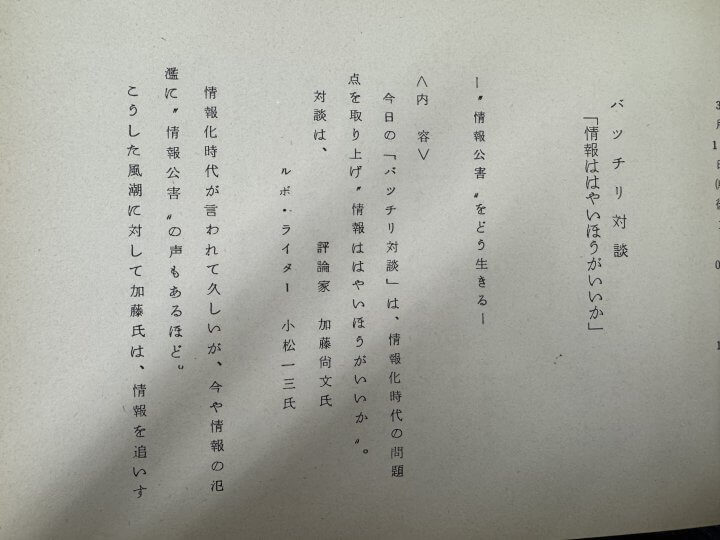 バッチリ対談
「情報ははやいほうがいいか」
―〝情報公害〟をどう生きる―
〈内　容〉
今日の「バッチリ対談」は、情報化時代の問題
点を取り上げ〝情報ははやいほうがいいか〟。
対談は、　　評論家　加藤尚文氏
ルポ・ライター　小松一三氏
情報化時代が言われて久しいが、今や情報の氾
濫に〝情報公害〟の声もあるほど。
こうした風潮に対して加藤氏は、情報を追いす